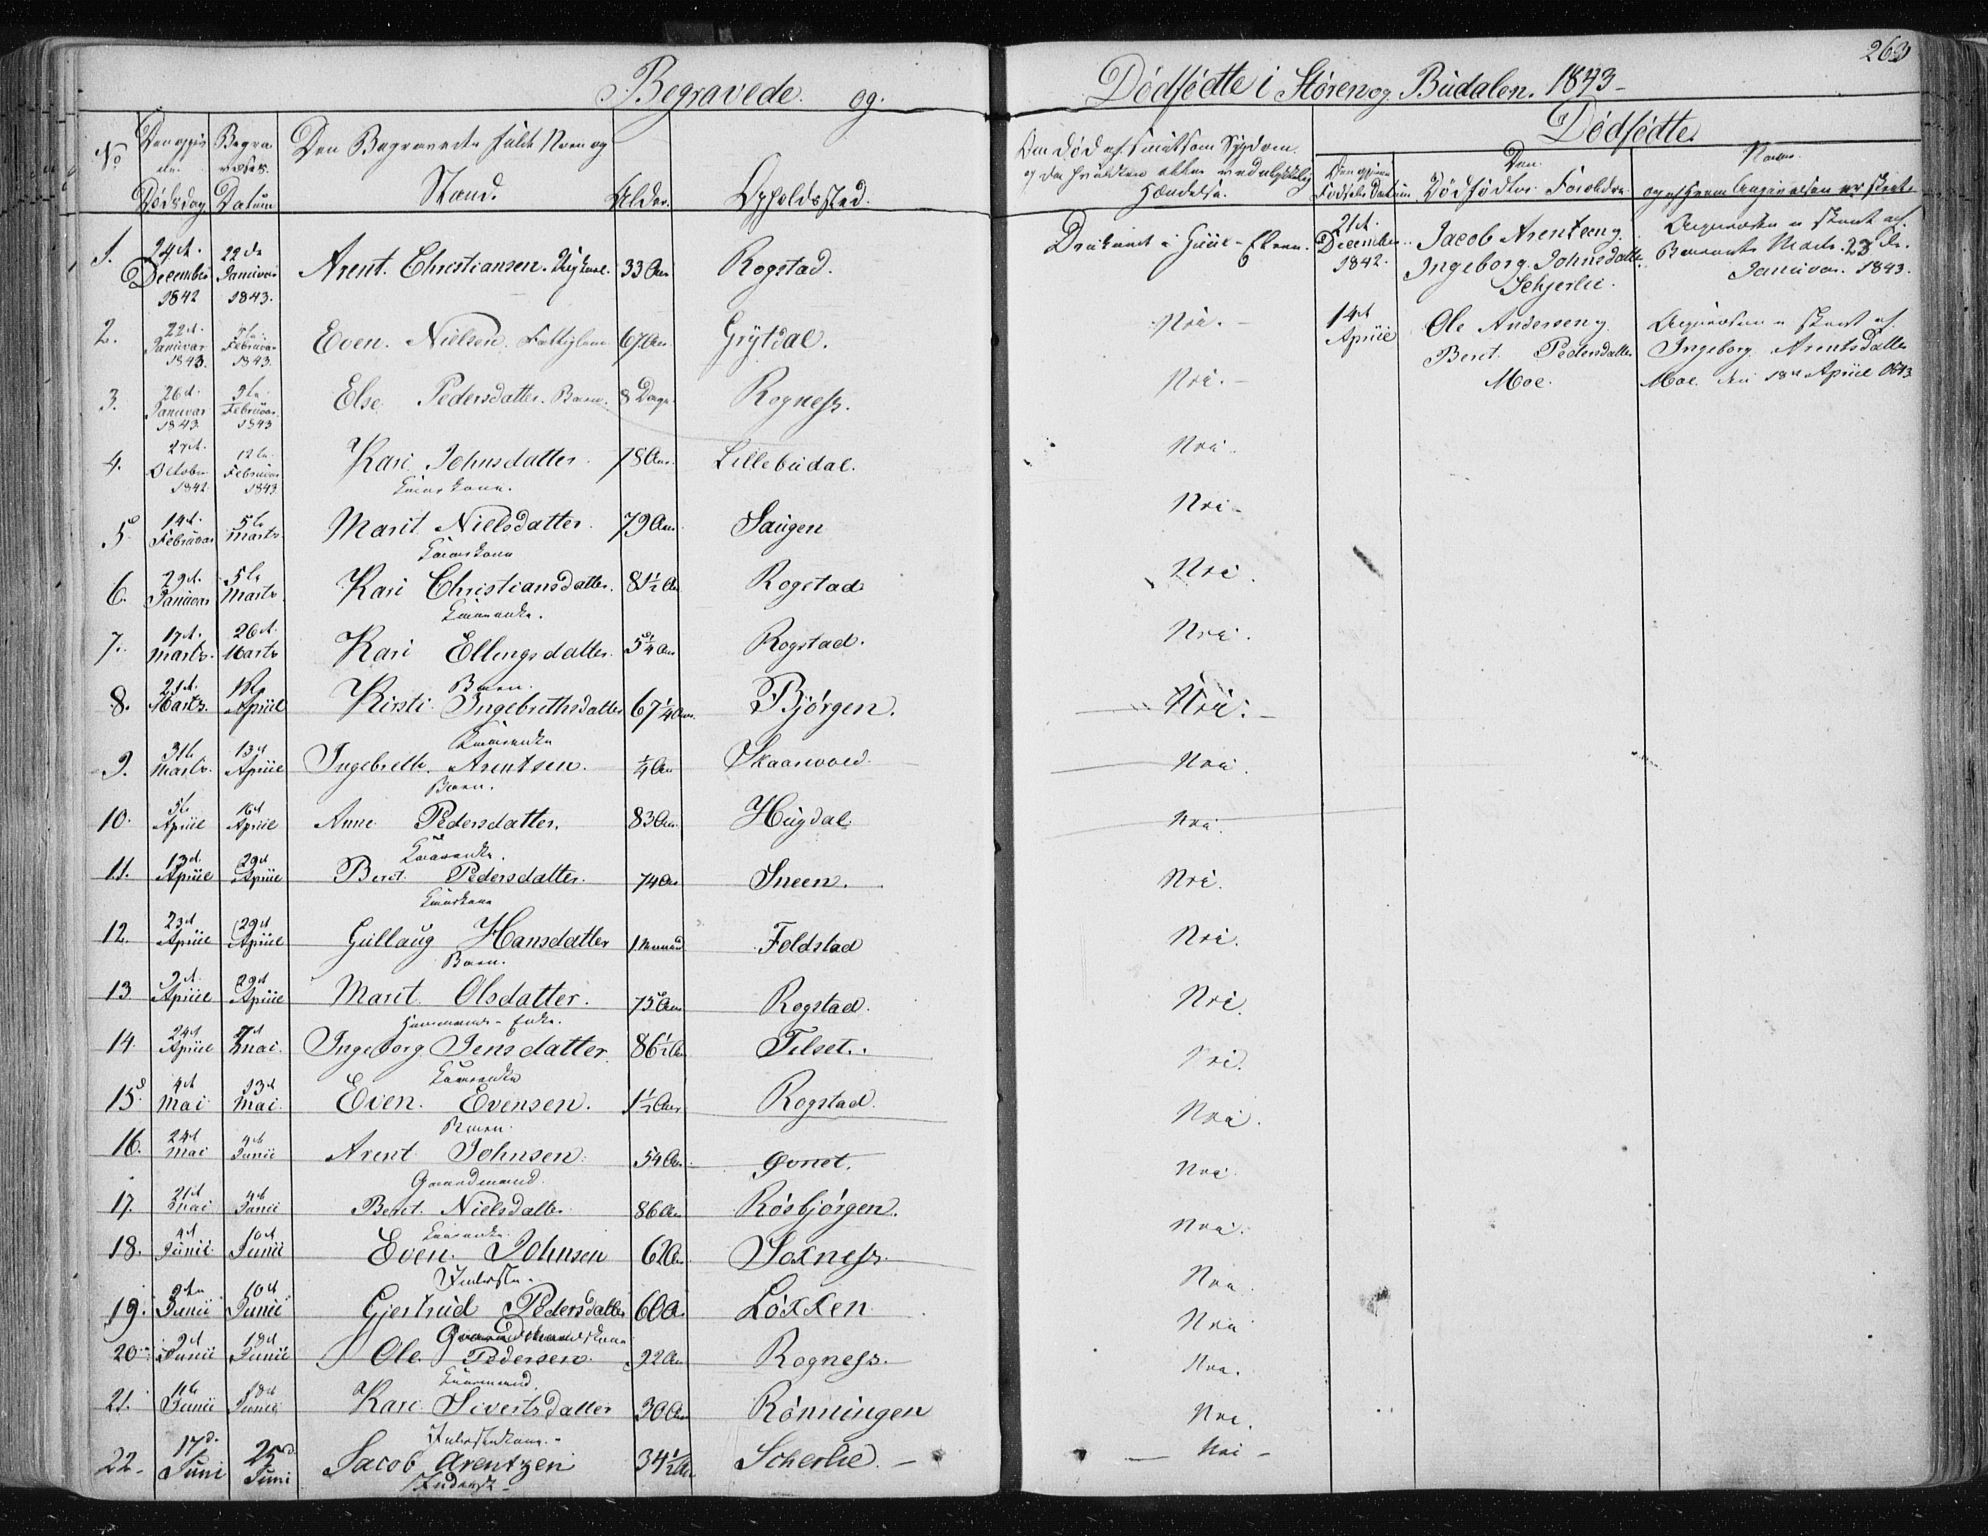 263
Begravede og Dødfødte i Støren og Budalen. 1843
No
Den opgivne Dødsdag
Begravelses Datum
Den Begravedes fulde Navn og Stand.
Alder.
Opholdssted.
Hændelse.
Dødfødte
Den Dødfødtes Forældre
1. 24de December 1842 22de Januar 1843. Arent Christiansen. 33 Aar Rogstad. Druknet i Guul-Elven.
2. 22d. Januar 1843. 5te Februar 1843. Even Nielsen Fattiglem 67 Aar Grytdal. Nei.
3. 26d. Januar 1843 5te Februar 1843 Else Pedersdatter. Barn. 8 Dage Rogness. Nei.
4. 27d. October 1842. 12te Februar 1843 Kari Johnsdatter 78 Aar. Lillebudal. Nei.
Kaarkone.
5. 14d. Februar 5te Marts Marit Nielsdatter. 79 Aar. Saugen Nei.
Kaarkone
6. 29d. Januar 5te Marts. Kari Christiansdatter. 81½ Aar Rogstad Nei.
Kaarenke.
7. 17d. Marts. 26d. Marts Kari Ellingsdatter 5¼ Aar Rogstad. Nei.
Barn.
8. 21d. Marts. April Kirsti Ingebrithsdatter 67¼ Aar. Bjørgen. Nei.
Kaarenke
9. 31te Marts. 13d April Ingebrith Arentsen. ¼ Aar Skaarvold. Nei.
Barn.
10. 5te April 16d April Anne Pedersdatter. 83 Aar. Hugdal. Nei.
Kaarenke.
11. 13d. April 29d April Beret Pedersdatter. 74 Aar Sneen. Nei.
Kaarkone
12. 23d April 29d April Gullaug Hansdatter 1 Maaned Foldstad Nei.
Barn.
13 2d. April 29d April Marit Olsdatter. 75 Aar Rogstad. Nei.
Enke.
14. 24d April 7d Mai. Ingeborg Jensdatter 86½ Aar Tilset. Nei.
Kaarenke
15. 4d Mai 13d Mai. Even Evensen. 1½ Aar Rogstad. Nei.
Barn.
16. 24d Mai 4d Junii Arent Johnsen. 54 Aar. Øvnet. Nei.
Gaardmand.
17. 21d Mai 4d Junii Beret Nielsdatter 86 Aar Rosbjørgen. Nei.
Kaarenke.
18. 4d Junii 10d Junii Even Johnsen 62 Aar Soxness. Nei
Inderste.
19. 2den Junii 10d Junii Gjertrud Pedersdatter 60 Aar Løkken Nei
Gaardmandskone
20. 9d Junii 18d Junii Ole Pedersen. 92 Aar Rogness. Nei.
Kaarmand.
21. 11te Junii 18d Junii Kari Sivertsdatter 30 Aar Rønningen Nei.
Inderstkone.
22. 17d. Juni 25d Juni Jacob Arentzen 34½ Aar. Scherlie. Nei
Inderst
21d. December 1842. Jacob Arentsen og Ingeborg Johnsdatter Schjerlie. Angivelsen er skeet af 23de Januar. 1843.
14d April Ole Andersen og Beret Pedersdatter Moe. Angivelsen er skeet af Ingeborg Arentsdatter Moe den 18d April 1843